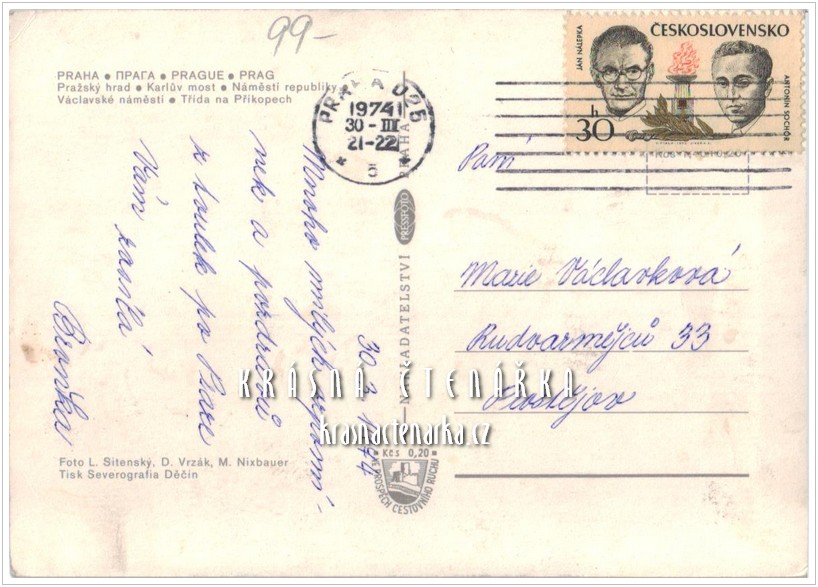 99-
PRAHA • ПРАГА • PRAGUE • PRAG
Pražský hrad • Karlův most • Náměstí republiky
Václavské náměstí • Třída na Příkopech
PRAHA 025
1974
30-III
21-22
ČESKOSLOVENSKO
JÁN NÁLEPKA
ANTONÍN SOCHOR
30 h
30.3.1974
Mnoho milých vzpomí-
nek a pozdravů
z toulek po Praze
Vám zasílá
Paní
Marie Václavková
Rudoarmějců 33
Prostějov
NAKLADATELSTVÍ PRESSFOTO PRAHA
Kčs 0,20
VE PROSPĚCH CESTOVNÍHO RUCHU
Foto L. Sitenský, D. Vrzák, M. Nixbauer
Tisk Severografia Děčín
KRÁSNÁ ČTENÁŘKA
krasnactenarka.cz